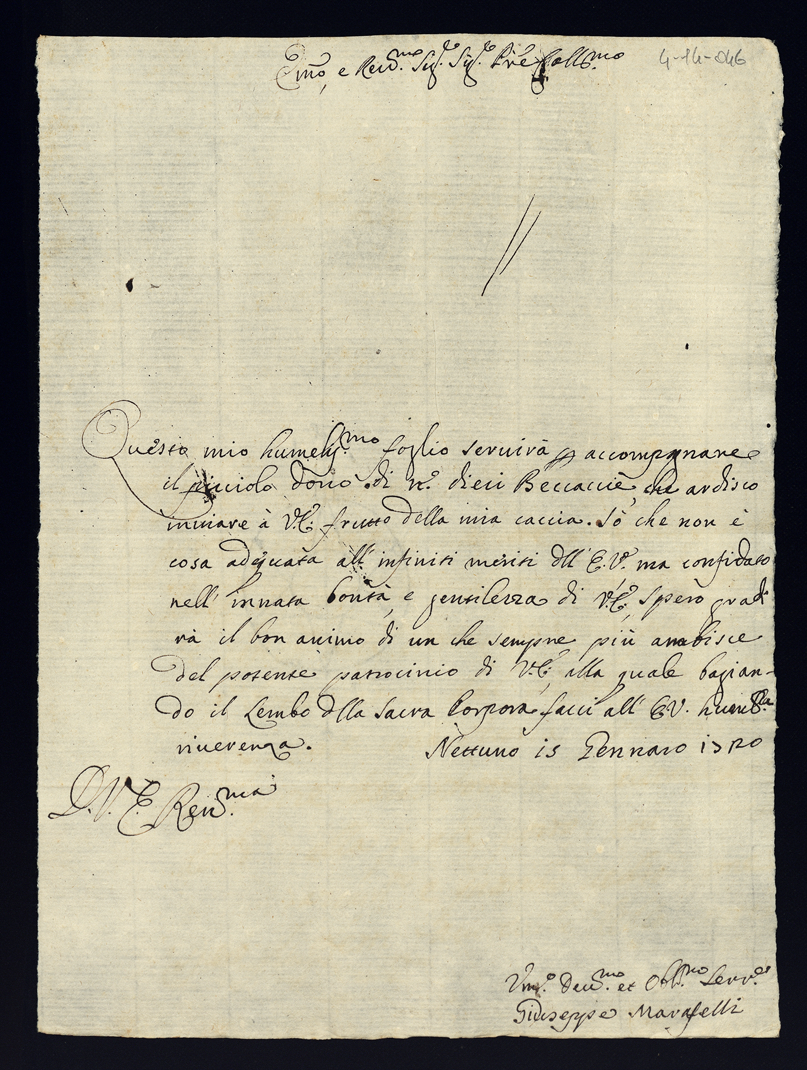 Em̃o, e Reu.mo Sig.e Sig.e Prẽ Coll.mo
4-14-046
Questo mio humeliss.mo foglio seruirà p accompagnare
il picciolo dono di n.o dieci Beccaccie, che ardisco
inuiare à V.E. frutto della mia caccia. Sò che non è
cosa adequata all'infiniti meriti dll'E.V. ma confidato
nell'innata bontà, e gentilezza di V.E., spero gradi
rà il bon animo di un che sempre più ambisce
del potente patrocinio di V.E., alla quale bagian-
do il Lembo dlla Sacra Porpora facci all'E.V. humil.ma
riuerenza. Nettuno 15 Gennaro 1720
D. V. E. Reu.ma
Vm.o Deu.mo et Obl.mo Serr.e
Giuseppe Maraselli